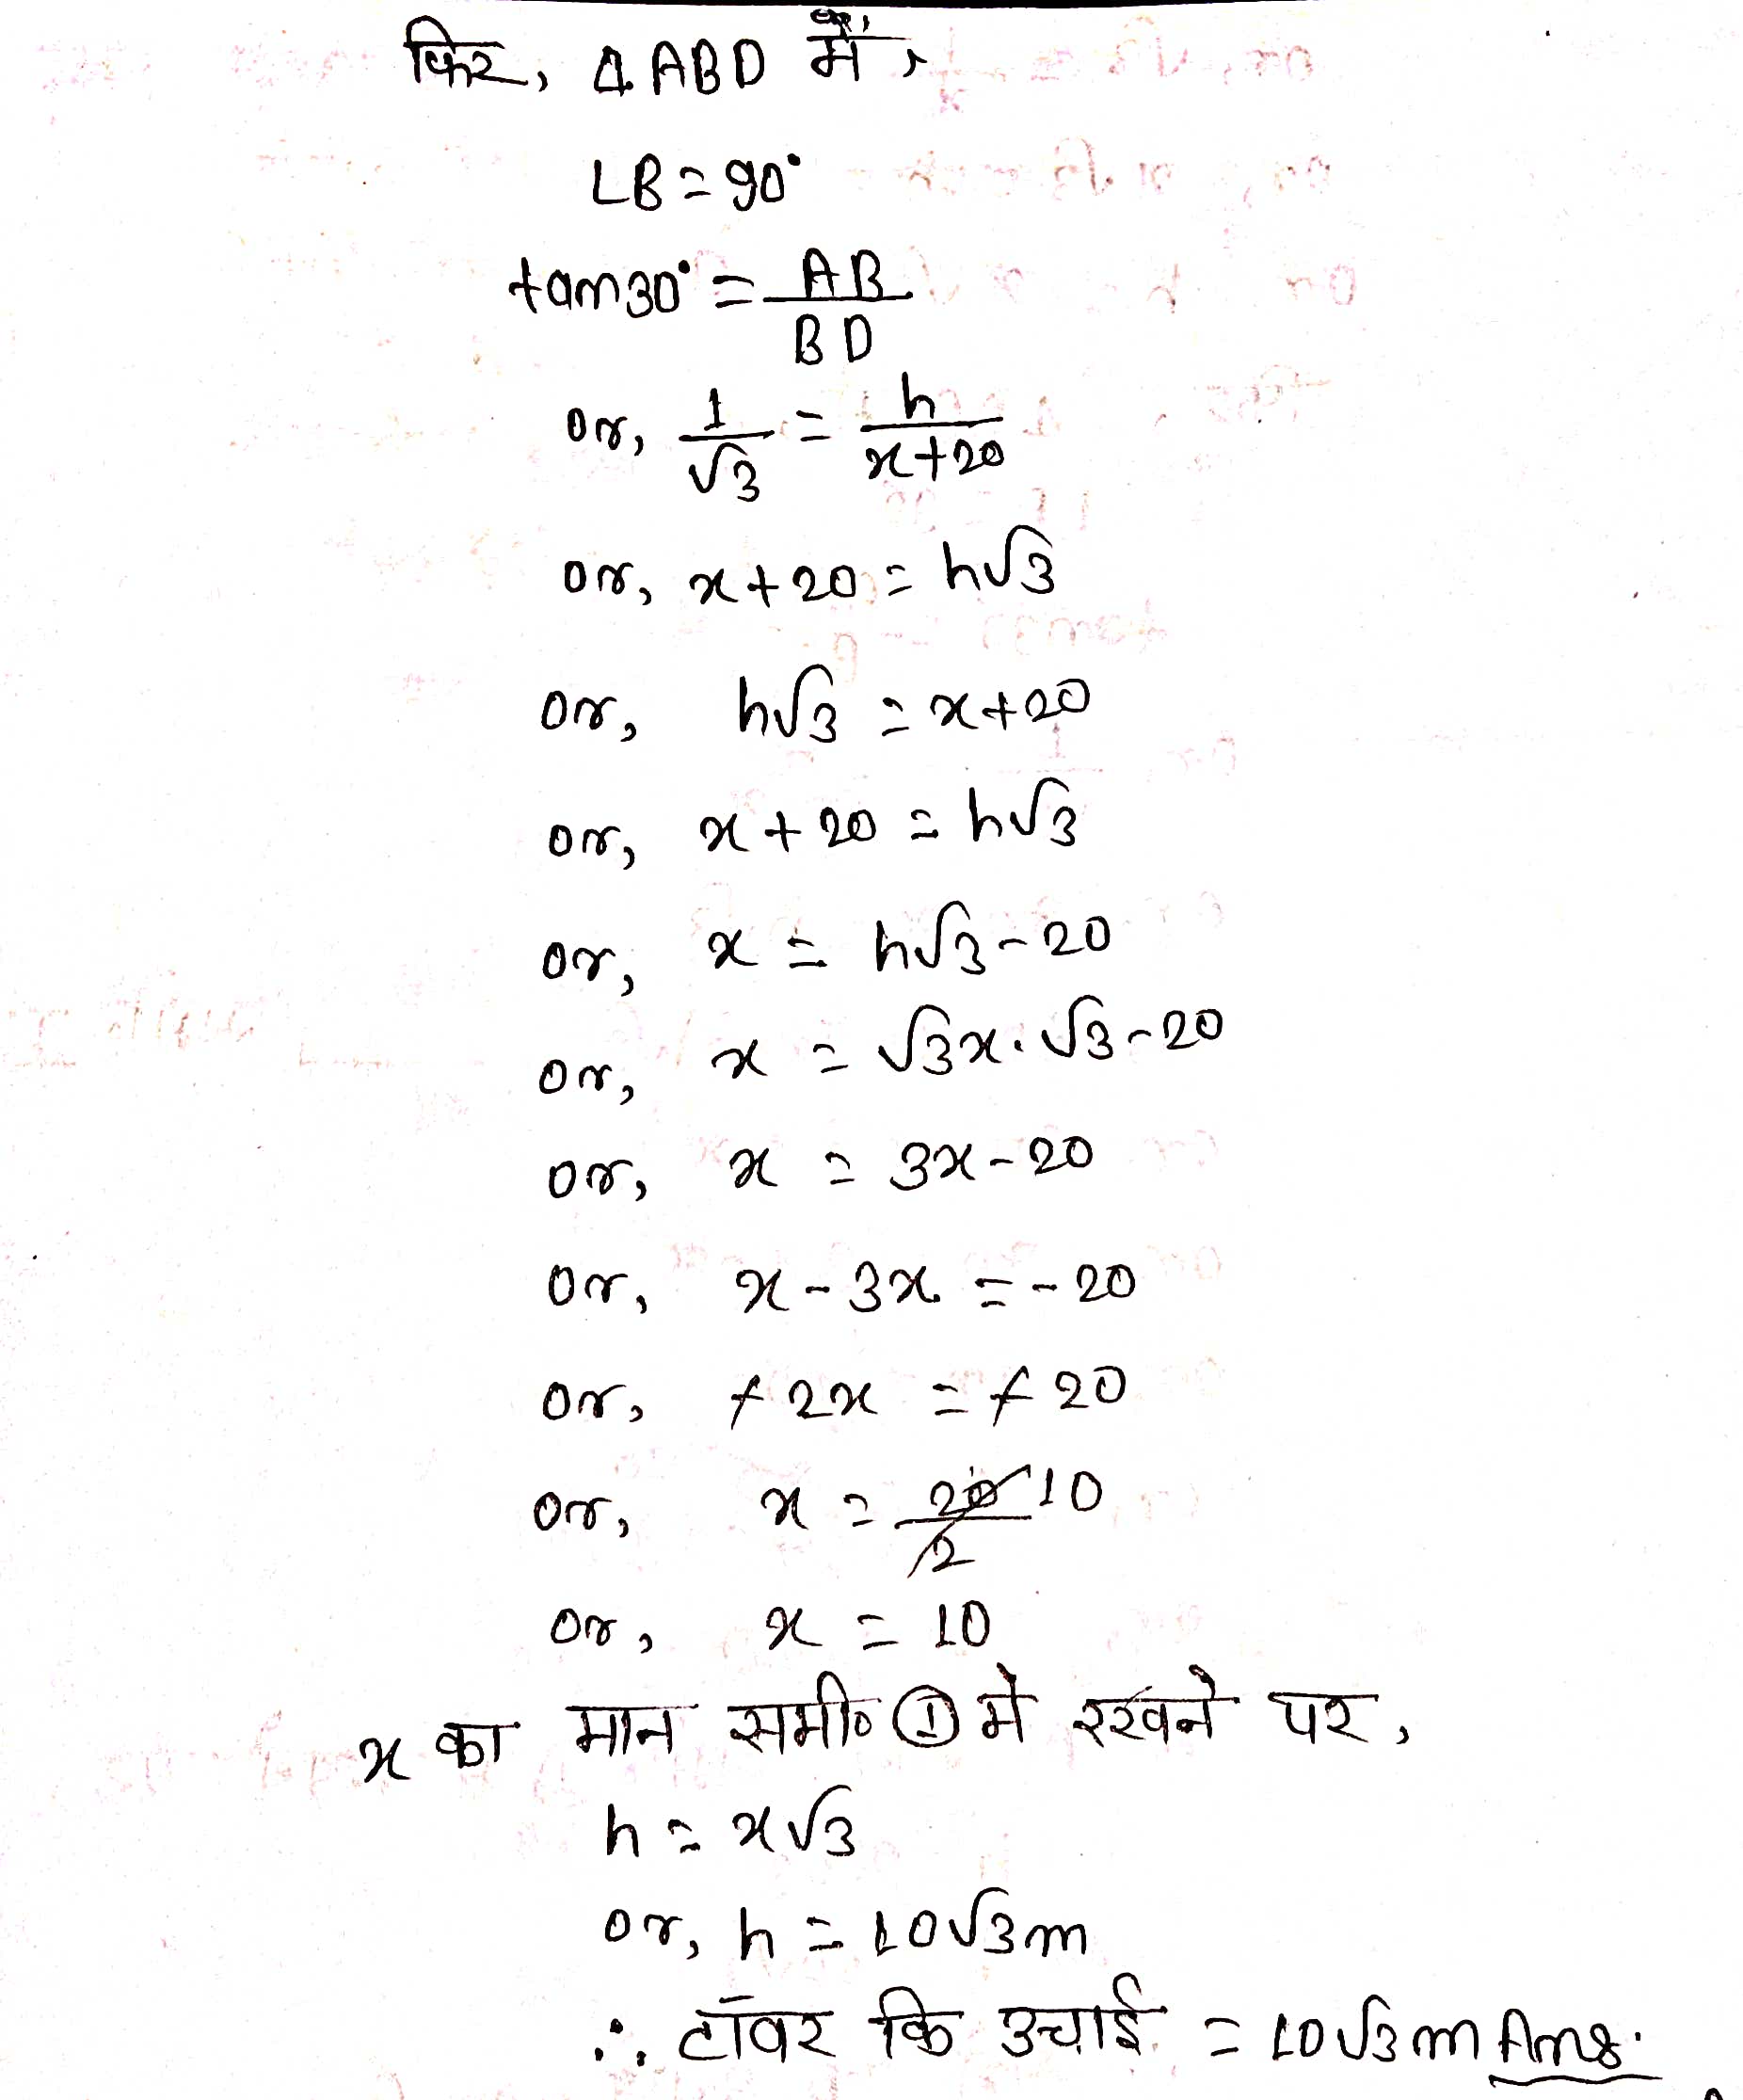 फिर, Δ ABD में,
∠B = 90°
tan30° = AB/BD
or, 1/√3 = h/x+20
or, x+20 = h√3
or, h√3 = x+20
or, x+20 = h√3
or, x = h√3-20
or, x = √3x.√3-20
or, x = 3x-20
or, x-3x = -20
or, +2x = +20
or, x = 20/2 10
or, x = 10
x का मान समी० ① मे रखने पर,
h = x√3
or, h = 10√3m
∴ टॉवर कि उचाई = 10√3m Ans.